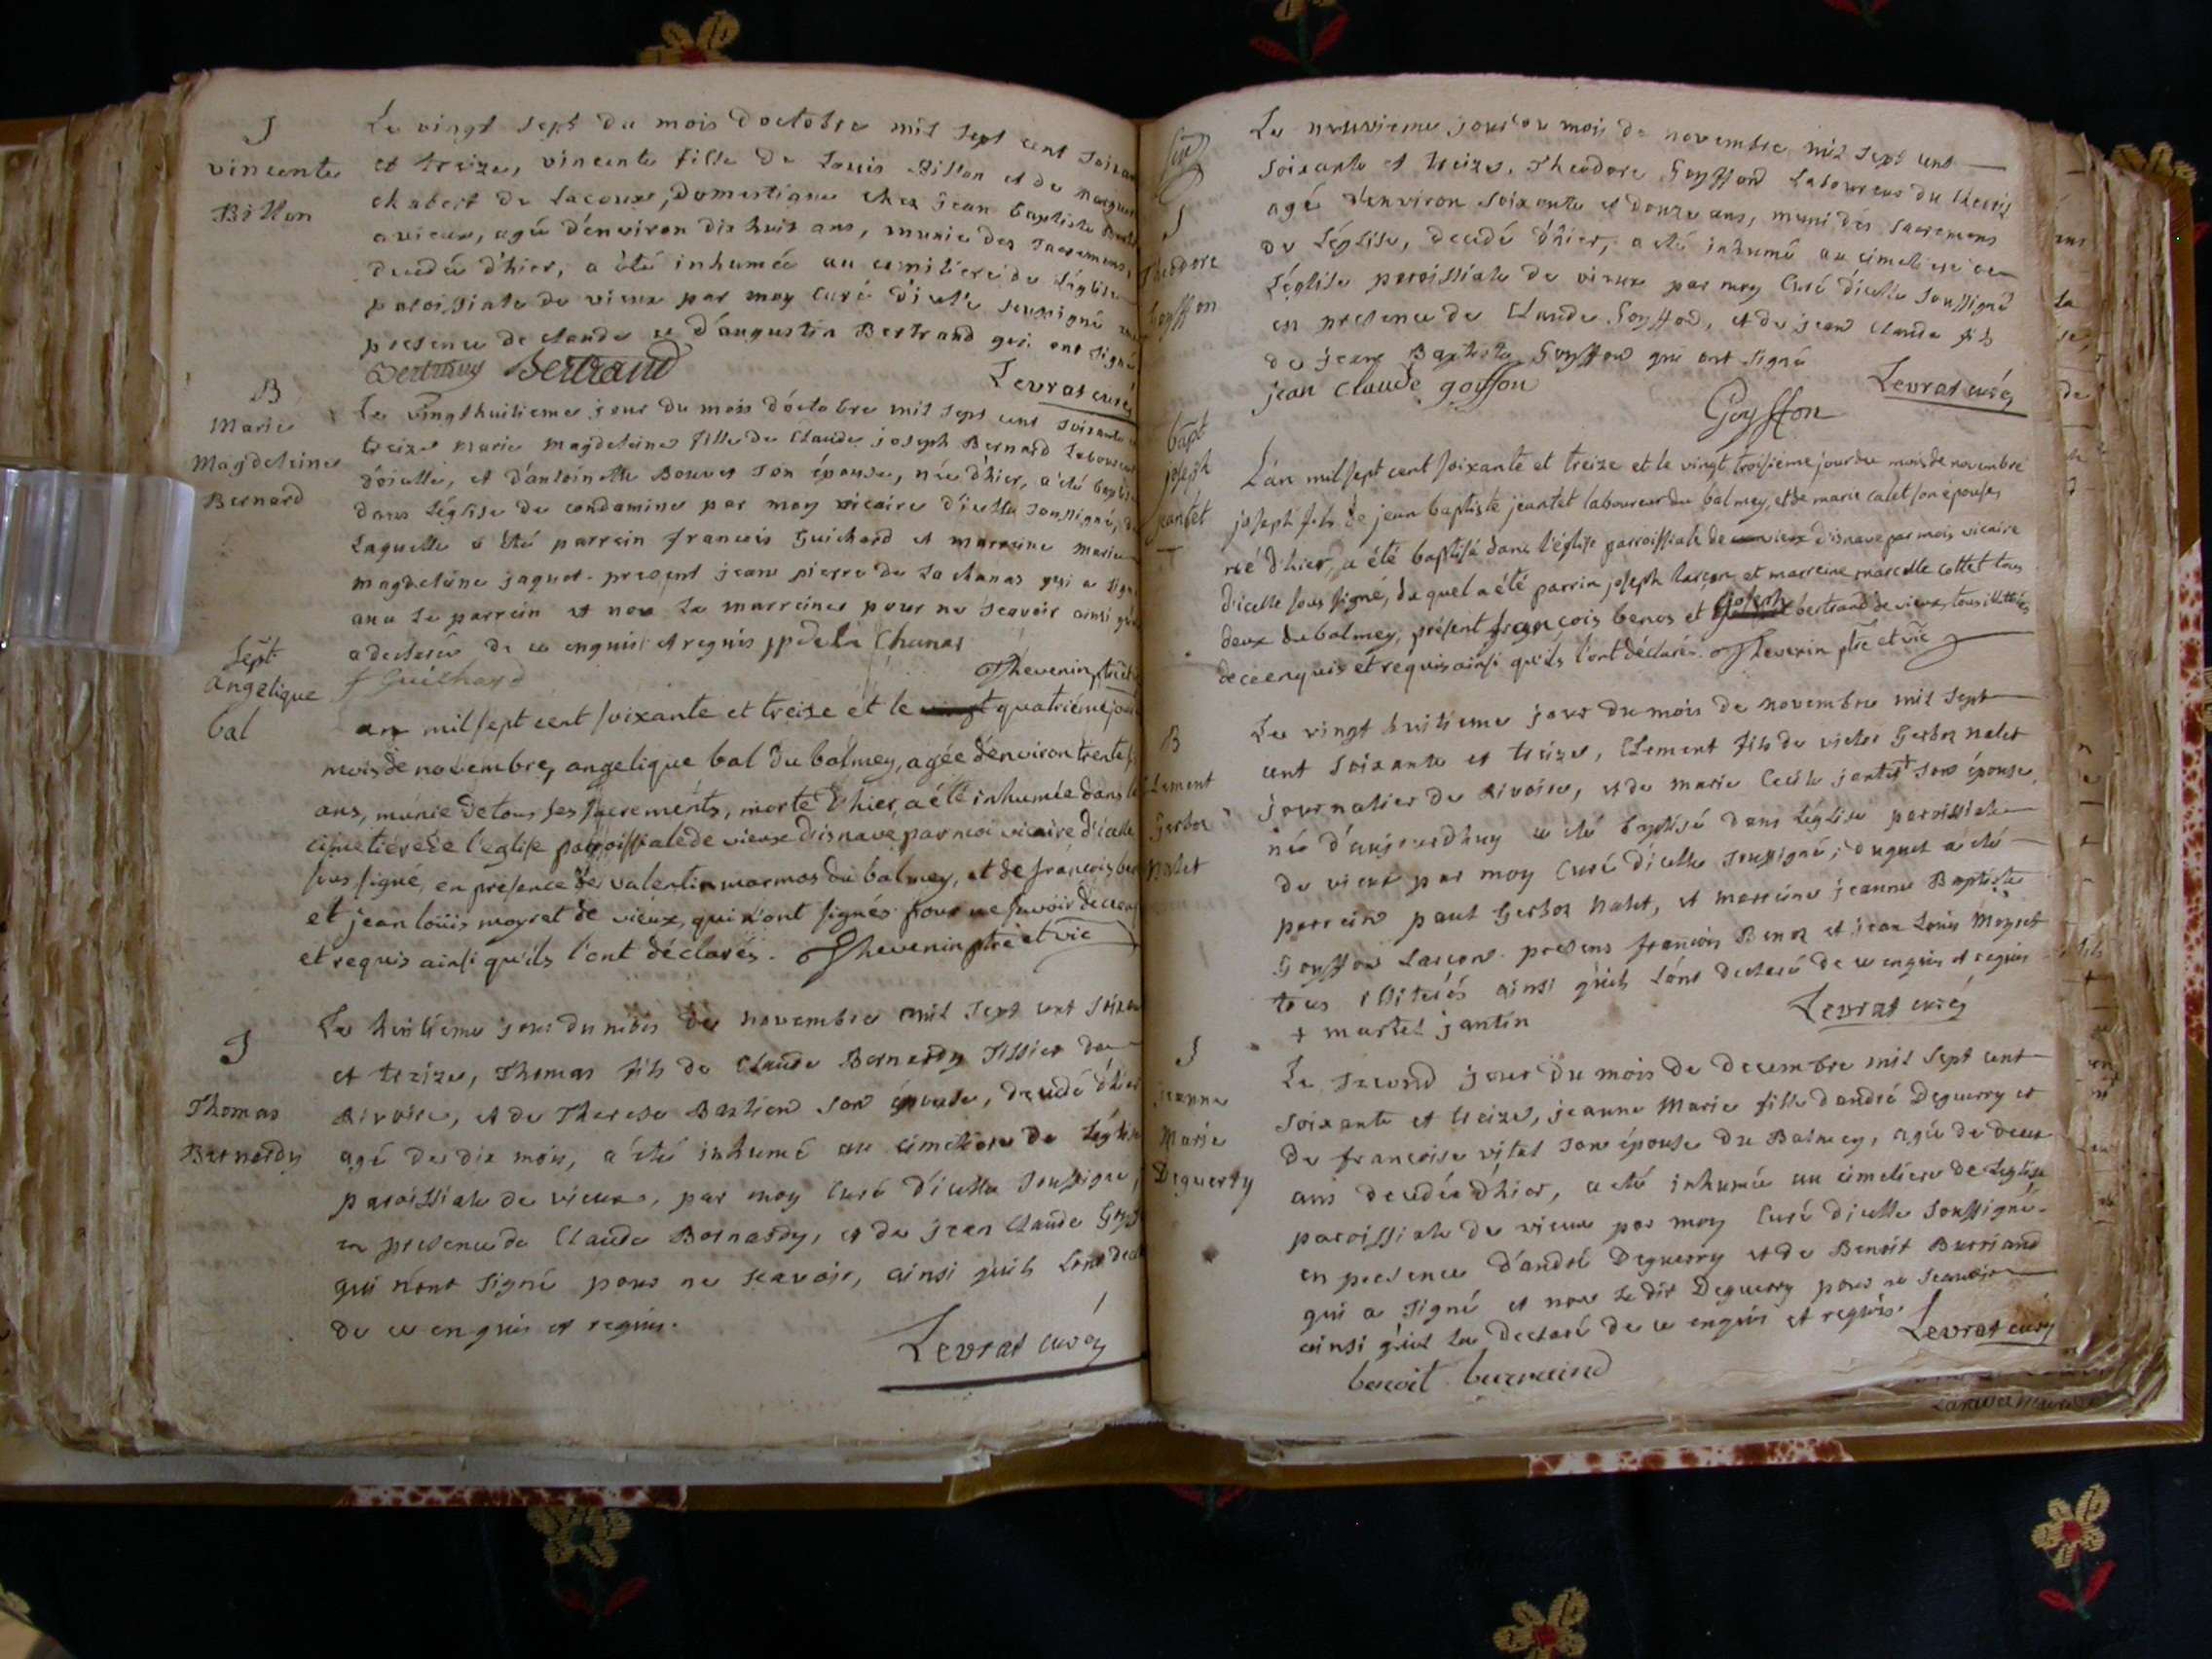 J
vincente
Billon
Le vingt sept du mois doctobre mil sept cent
et treize, vincente fille de Louis Billon et de
chabert de Lacoux, Domestique chez jean baptiste
a vieux, agée d'environ dix huit ans, munie des sacremens,
decedée d'hier, a été inhumée au cimitiere de léglise
paroissiale de vieux par moy curé d'icelle soussigné
presence de claude et d'augustin Bertrand qui ont signé
Bertrand Bertrand
Levrat curé
B
Marie
Magdeleine
Bernard
Le vingthuitieme jour du mois d'octobre mil sept cent soixante
treize marie magdeleine fille de Claude joseph Bernard
d'icelle, et d'antoinette Bouvet son épouse, née d'hier, a été
dans léglise de condamine par moy vicaire d'icelle soussigné,
Laquelle a été parrein francois Guichard et marreine marie
magdeleine jaquet. present jean pierre de la chanas qui a
avec le parrein et non la marreine pour ne scavoir ainsi
a declaré de ce enquis et requis jp de la Chanas
f Guichard
Thevenin
sept.
angelique
bal
an mil sept cent soixante et treize et le vingt quatrième
mois de novembre, angelique bal du balmey, agée d'environ trente
ans, munie de tous ses sacrements, morte d'hier, a été inhumée dans
cimetière de l'eglise paroissiale de vieux disnave, par moi vicaire d'icelle
sous signé, en presence de valentin marmos du balmey, et de françois
et jean loüis moyret de vieux, qui n'ont signés pour ne savoir de
et requis ainsi qu'ils l'ont déclarés. Thevenin ptre et vic
J
Thomas
Bernardy
Le huitieme jour du mois de novembre mil sept cent
et treize, Thomas fils de Claude Bernardy Tissier de
Rivoire, et de Therese Bastien son épouse, decedé d'hier
agé de dix mois, a été inhumé au cimetiere de léglise
paroissiale de vieux, par moy curé d'icelle soussigné,
en presence de Claude Bernardy, et de jean Claude
qui n'ont signé pour ne scavoir, ainsi qu'ils l'ont
de ce enquis et requis.
Levrat curé
J
Theodore
Goyffon
Le neuvieme jour du mois de novembre mil sept cent
soixante et treize, Theodore Goyffon Laboureur du
agé d'environ soixante et douze ans, muni des sacremens
de léglise, decedé d'hier, a été inhumé au cimetiere de
léglise paroissiale de vieux par moy curé d'icelle soussigné
en presence de Claude Goyffon, et de jean Claude fils
de jean Baptiste Goyffon qui ont signé
jean claude goyffon
Goyffon
Levrat curé
bapt
joseph
jeantet
L'an mil sept cent soixante et treize et le vingt troisième jour du mois de novembre
joseph fils de jean baptiste jeantet laboureur du balmey, et de marie calet son épouse,
né d'hier, a été baptisé dans l'église parroissiale de vieux disnave par moi vicaire
d'icelle sous signé, du quel a été parrin joseph larçon et marreine marcelle cottet tous
deux du balmey, présent françois benos et joseph bertrand de vieux, tous illitérés
de ce enquis et requis ainsi qu'ils l'ont déclarés. Thevenin ptre et vic
B
Clement
Gerboz
Nalet
Le vingt huitieme jour du mois de novembre mil sept
cent soixante et treize, Clement fils de victor Gerboz nalet
journalier de Rivoire, et de marie Cecile jantet + son épouse,
né d'aujourdhuy a été baptisé dans léglise paroissiale
de vieux par moy curé d'icelle soussigné; duquel a été
parrein paul Gerboz Nalet, et marreine jeanne Baptiste
Goyffon Larcon. presens francois Benoz et jean Louis Moyret
tous illiterés ainsi qu'ils l'ont declaré de ce enquis et requis
+ martel jantin
Levrat curé
J
jeanne
Marie
Deguerry
Le second jour du mois de decembre mil sept cent
soixante et treize, jeanne Marie fille d'andré Deguerry et
de francoise vital son épouse du Balmey, agée de deux
ans decedée d'hier, a été inhumée au cimetiere de léglise
paroissiale de vieux par moy curé d'icelle soussigné.
en presence d'andré Deguerry et de Benoit Burriand
qui a signé et non le dit Deguerry pour ne scavoir
ainsi qu'il la declaré de ce enquis et requis.
Levrat curé
benoit burriand